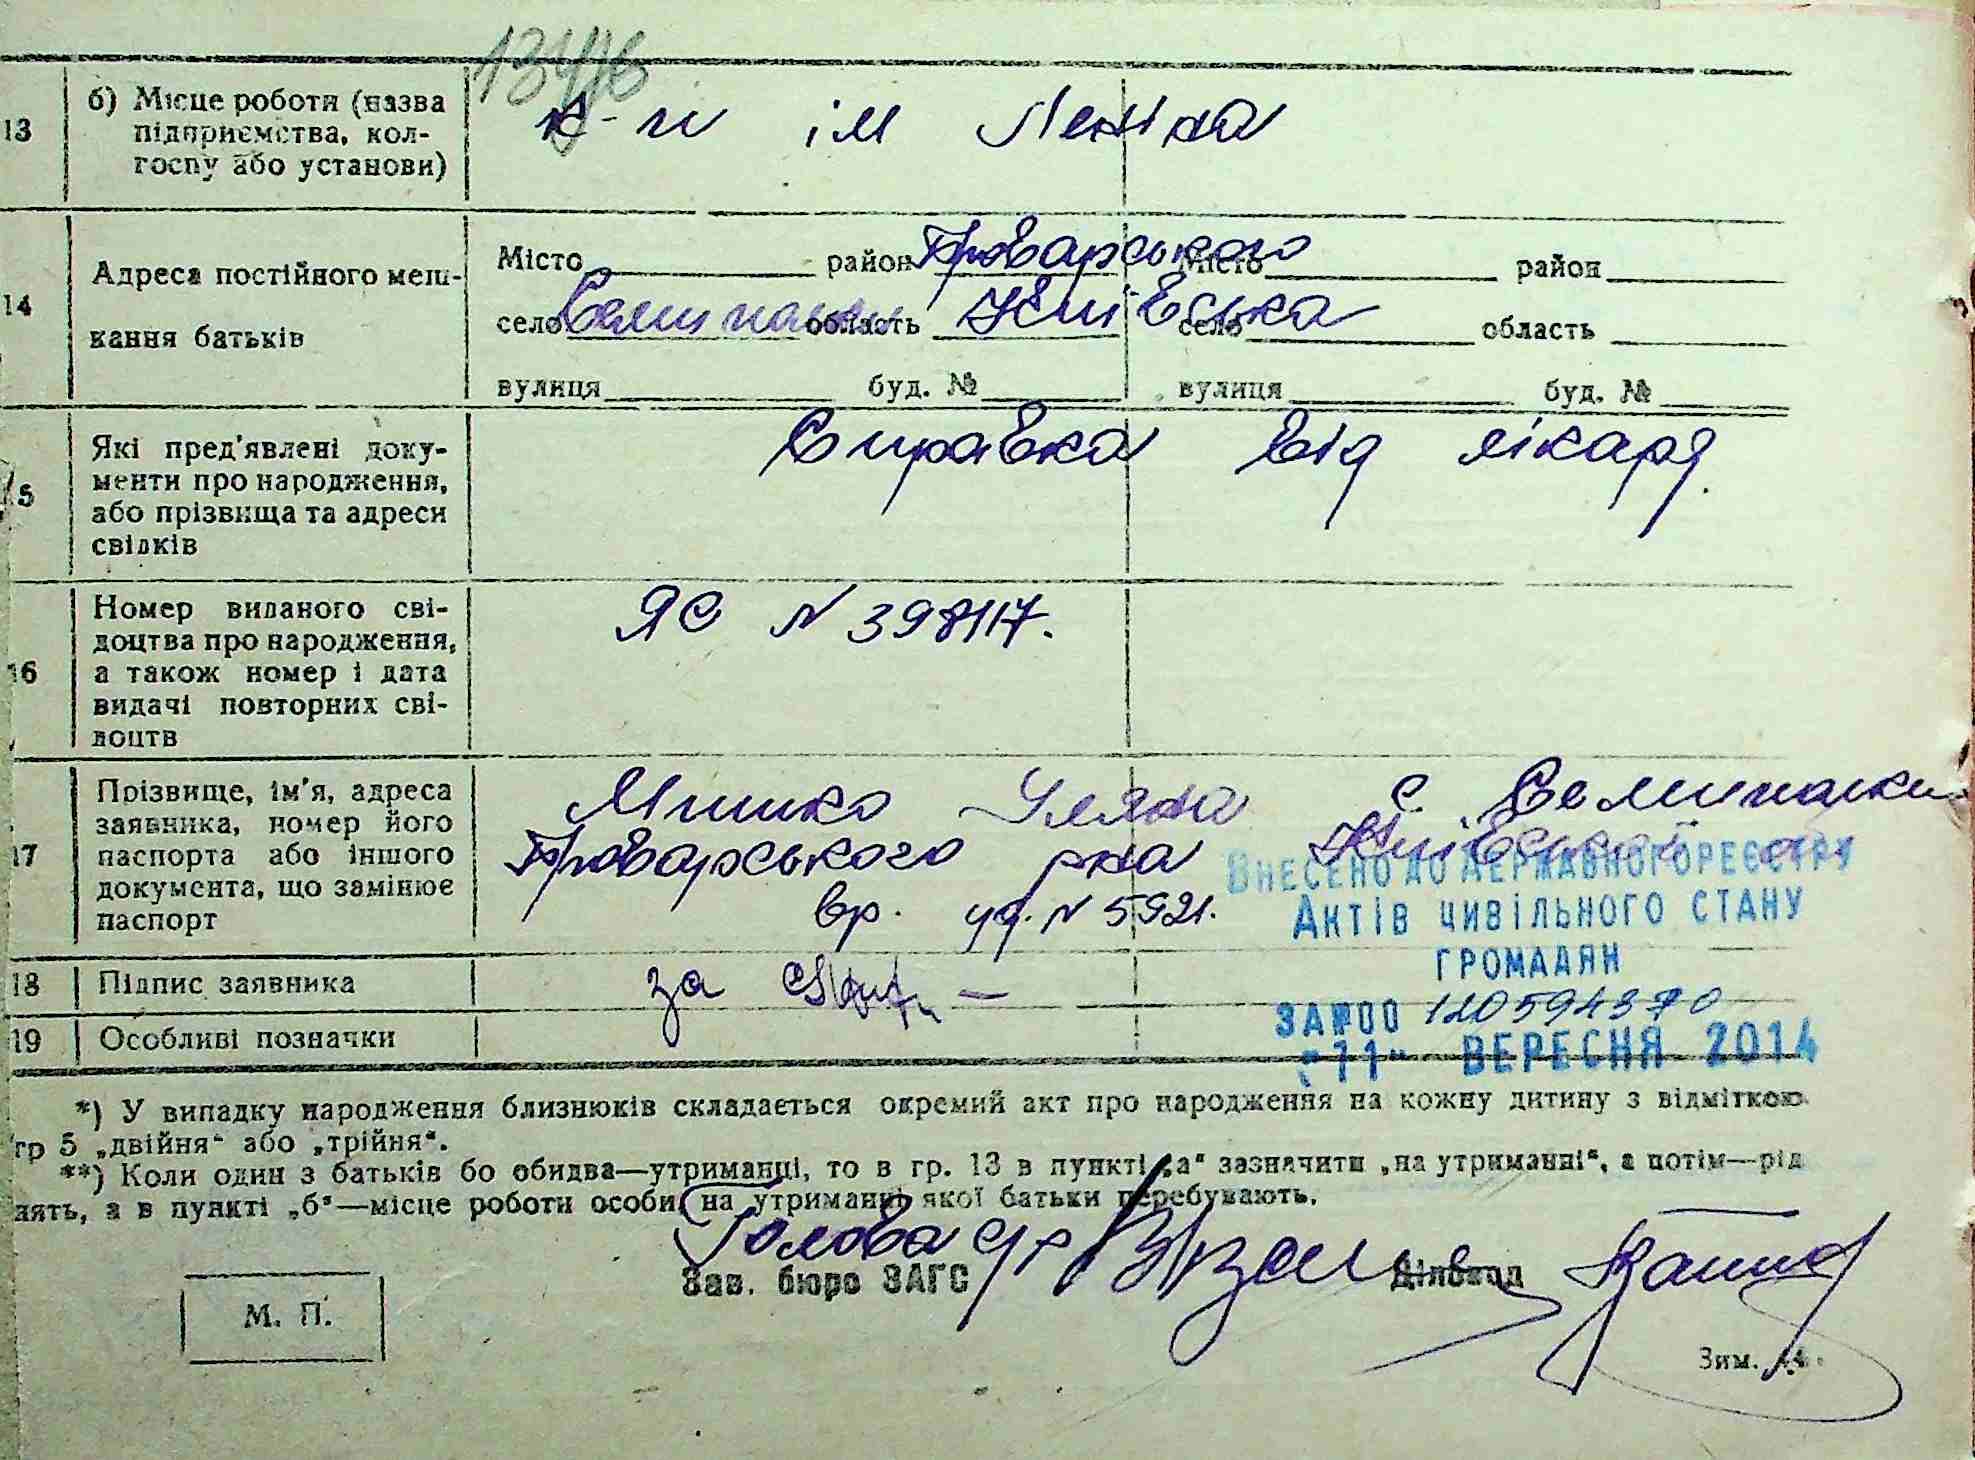 134/16
13
б) Місце роботи (назва
підприємства, кол-
госпу або установи)
к-п ім Леніна
14
Адреса постійного меш-
кання батьків
Місто район Броварського Місто район
село Семиполки область Київська село область
вулиця буд. № вулиця буд. №
15
Які пред'явлені доку-
менти про народження,
або прізвища та адреси
свідків
Справка від лікаря.
16
Номер виданого сві-
доцтва про народження,
а також номер і дата
видачі повторних сві-
доцтв
ЯС № 398117.
17
Прізвище, ім'я, адреса
заявника, номер його
паспорта або іншого
документа, що замінює
паспорт
Мишко Уляна с. Семиполки
Броварського р-на Київської о
вр. уд. № 5921.
Внесено до Державного реєстру
Актів цивільного стану
громадян
за №00 120594370
"11" вересня 2014
18
Підпис заявника
за
19
Особливі позначки
*) У випадку народження близнюків складається окремий акт про народження на кожну дитину з відміткою
гр 5 „двійня“ або „трійня“.
**) Коли один з батьків бо обидва—утриманці, то в гр. 13 в пункті „а“ зазначити „на утриманні“, а потім—рід
нять, а в пункті „б“—місце роботи особи, на утриманні якої батьки перебувають.
Голова с/р
Зав. бюро ЗАГС Діловод
М. П.
Зим.